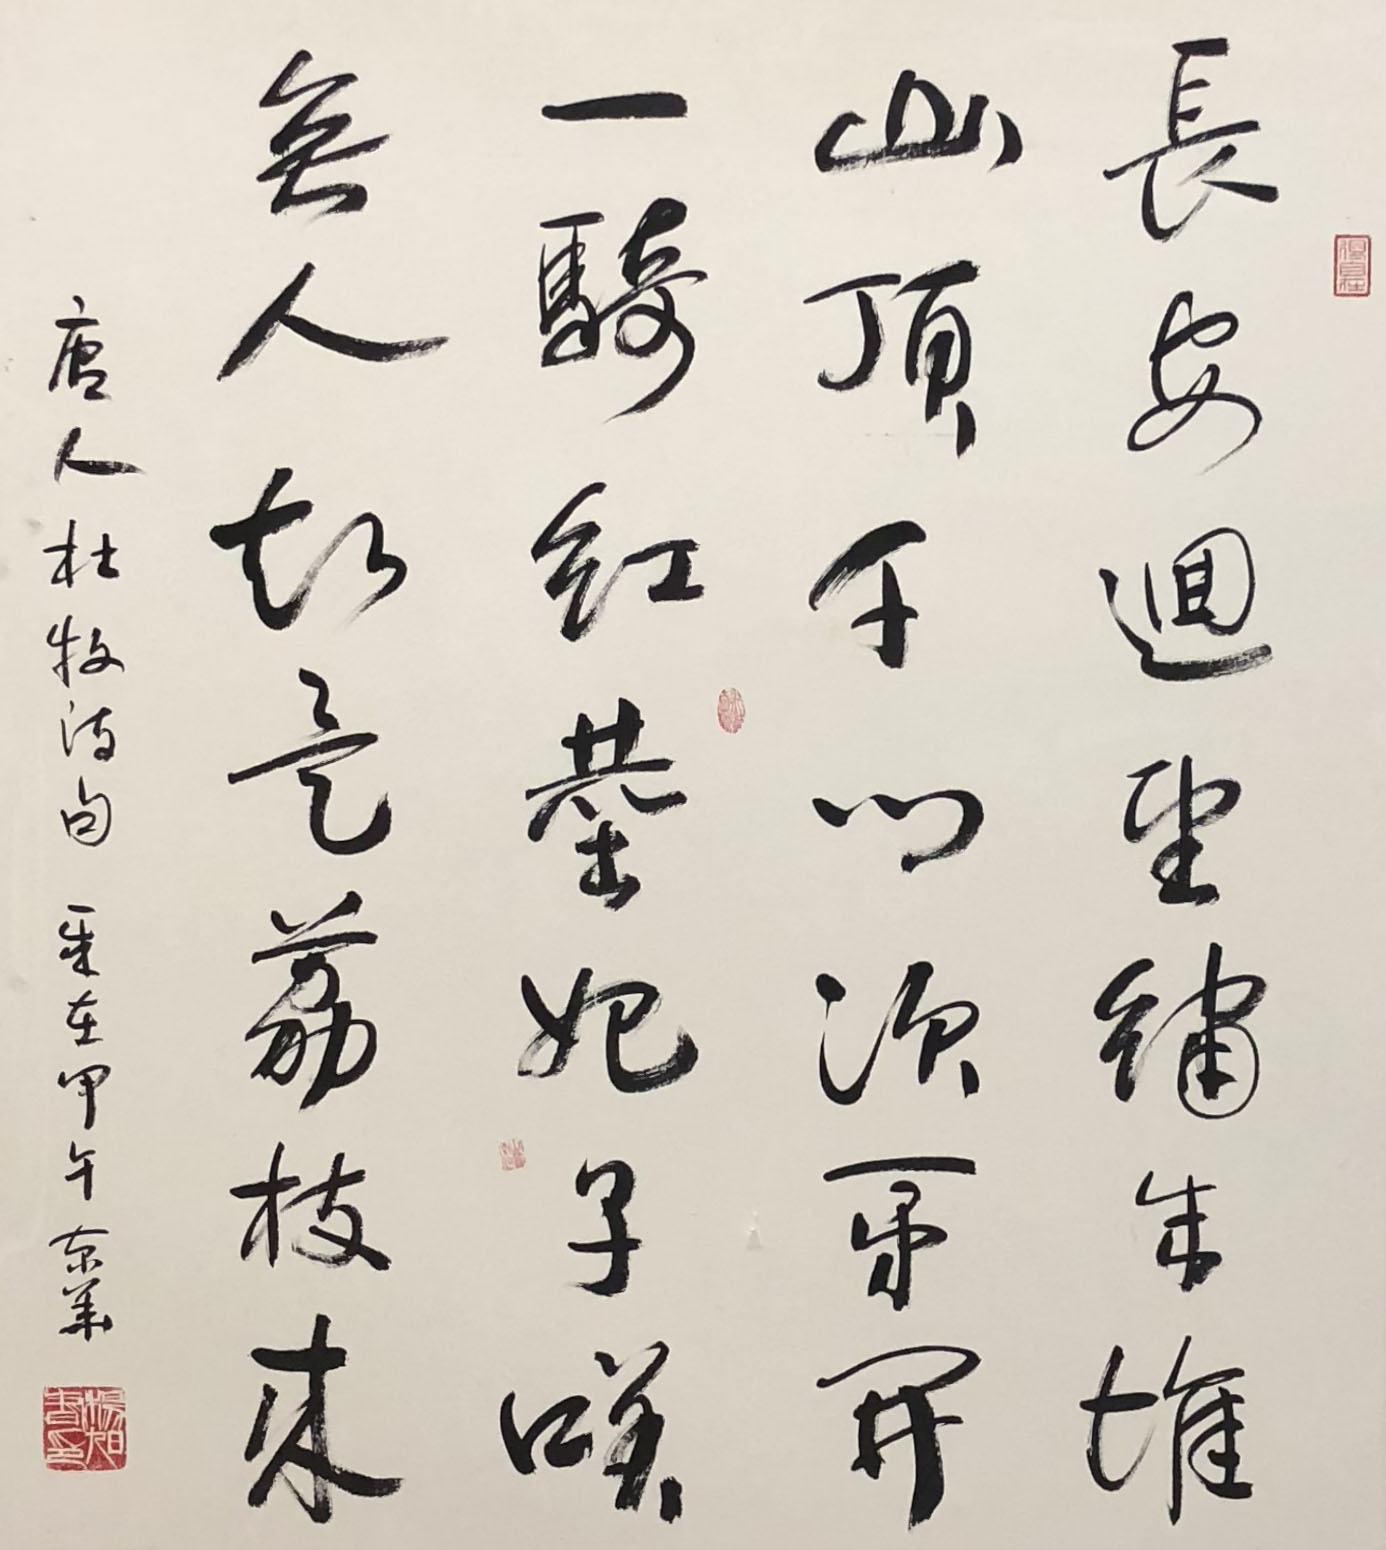 長安迴望繡成堆
山頂千門次第開
一騎紅塵妃子咲
無人知是荔枝來
唐人杜牧詩句 歲在甲午 京華